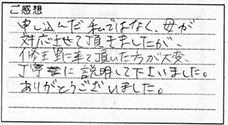 ご感想
申し込んだ私ではなく、母が
対応させて頂きましたが、
修理に来て頂いた方が大変、
丁寧に説明して下さいました。
ありがとうございました。